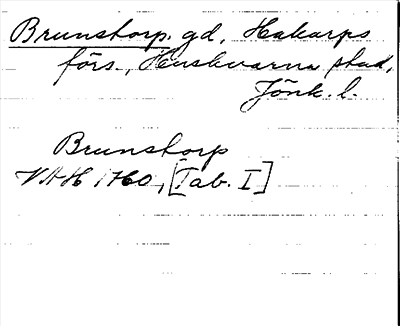 Brunstorp, gd, Hakarps
förs., Huskvarna stad,
Jönk. l.
Brunstorp
VAH 1760, [Tab. I]